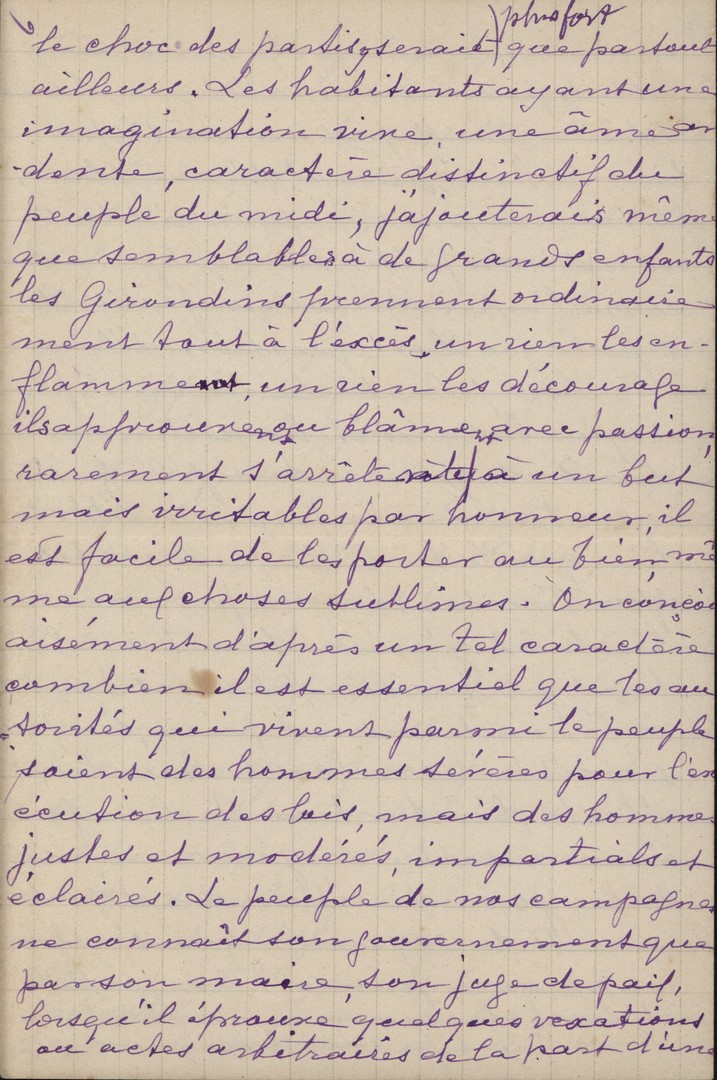 plus fort
le choc des partis y serait que partout
ailleurs. Les habitants ayant une
imagination vive, une âme ar
-dente, caractère distinctif du
peuple du midi, j'ajouterais même
que semblables à de grands enfants
les Girondins prennent ordinaire
ment tout à l'excès, un rien les en-
flamme, un rien les décourage
ils approuvent ou blâment avec passion,
rarement s'arrêtent à un but
mais irritables par honneur, il
est facile de les porter au bien mê
me aux choses sublimes. On conçoi
aisément d'après un tel caractère
combien il est essentiel que les au
-torités qui vivent parmi le peuple
soient des hommes sévères pour l'ex
écution des lois, mais des hommes
justes et modérés, impartials et
éclairés. Le peuple de nos campagnes
ne connaît son gouvernement que
par son maire, son juge de paix,
lorsqu'il éprouve quelques vexations
ou actes arbitraires de la part d'une